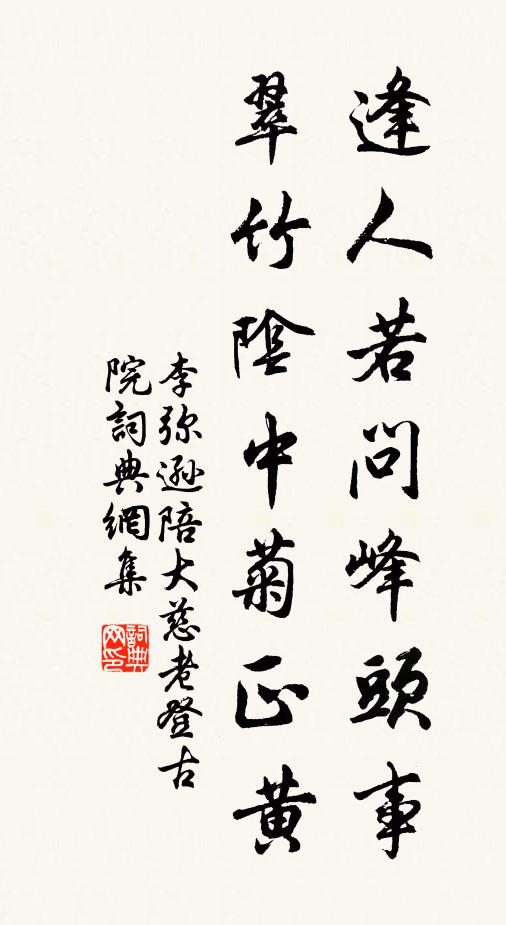 逢人若問峰頭事
翠竹陰中菊正黄
李弥遜陪大慈老登古
院詞典網集
詞典
网印